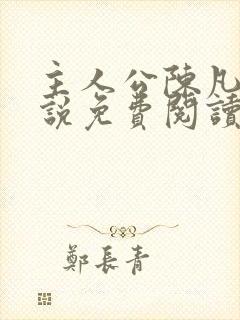 主人公陳凡
說免費閱讀
鄭長青